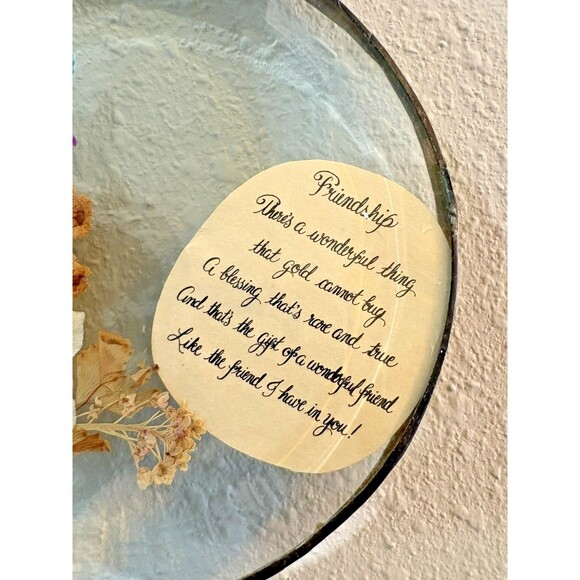 Friendship
There's a wonderful thing
that gold cannot buy
A blessing that's rare and true
And that's the gift of a wonderful friend
Like the friend I have in you!